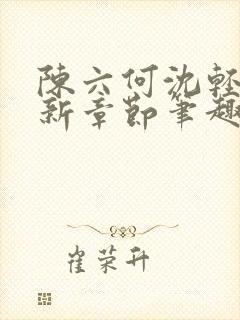 陳六何沈輕
新章節筆趣
崔荣升